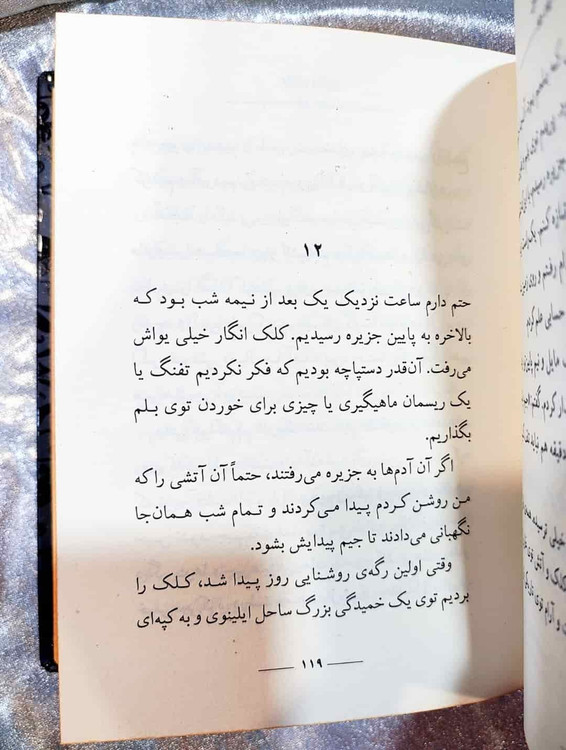 ۱۲
حتم دارم ساعت نزدیک یک بعد از نیمه شب بود که
بالاخره به پایین جزیره رسیدیم. کلک انگار خیلی یواش
می‌رفت. آن‌قدر دستپاچه بودیم که فکر نکردیم تفنگ یا
یک ریسمان ماهیگیری یا چیزی برای خوردن توی بلم
بگذاریم.
اگر آن آدم‌ها به جزیره می‌رفتند، حتماً آن آتشی را که
من روشن کردم پیدا می‌کردند و تمام شب همان‌جا
نگهبانی می‌دادند تا جیم پیدایش بشود.
وقتی اولین رگه‌ی روشنایی روز پیدا شد، کلک را
بردیم توی یک خمیدگی بزرگ ساحل ایلینوی و به کپه‌ای
۱۱۹